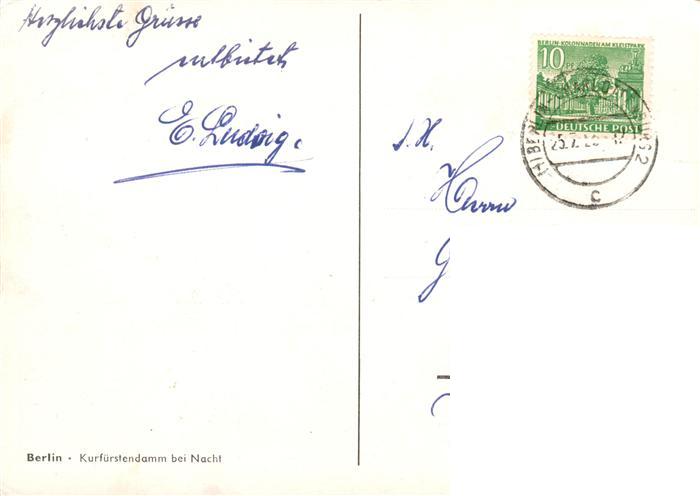 Herzlichste Grüsse
entbietet
E. Ludwig.
S. H.
Herrn
G
BERLIN KOLONNADEN AM KLEISTPARK
10
DEUTSCHE POST
C
Berlin • Kurfürstendamm bei Nacht